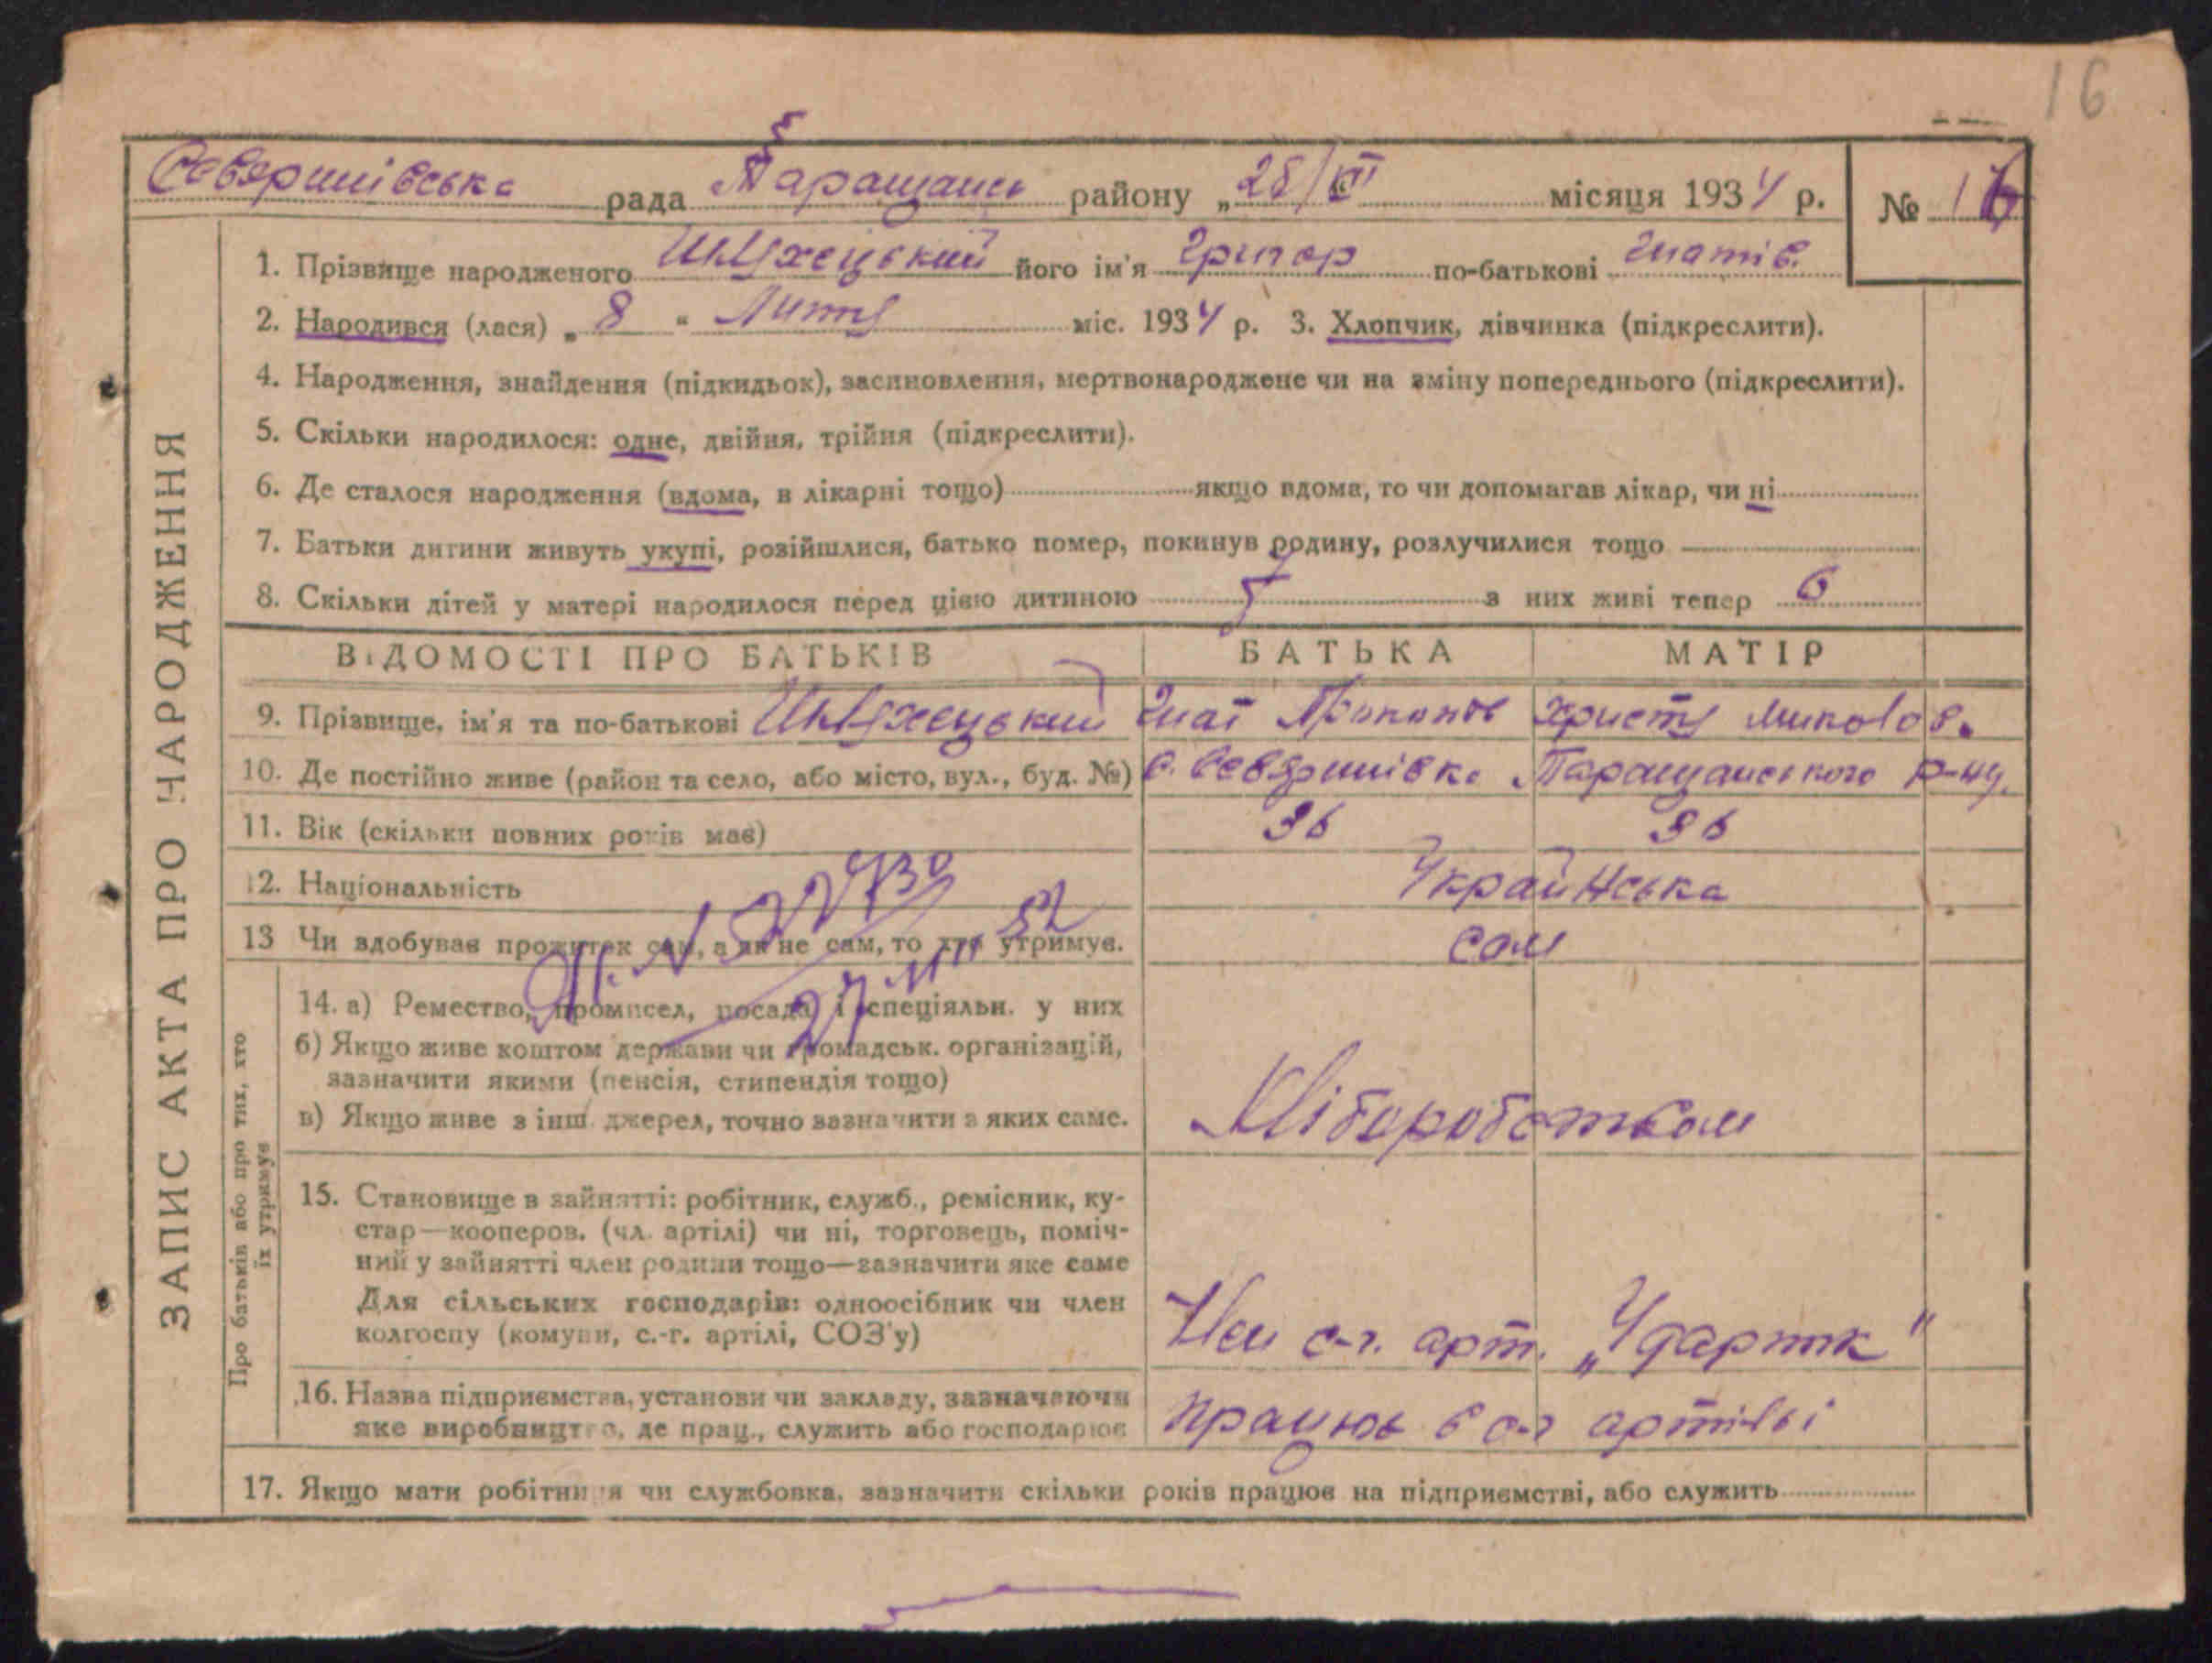 16
Северинівська рада Таращанс району „ 28/III місяця 1934 р. № 16
1. Прізвище народженого його ім'я Григор по-батькові Гнатів.
2. Народився (лася) „ 8 “ Люту міс. 1934 р. 3. Хлопчик, дівчинка (підкреслити).
4. Народження, знайдення (підкидьок), засиновлення, мертвонароджене чи на зміну попереднього (підкреслити).
5. Скільки народилося: одне, двійня, трійня (підкреслити).
6. Де сталося народження (вдома, в лікарні тощо) якщо вдома, то чи допомагав лікар, чи ні
7. Батьки дитини живуть укупі, розійшлися, батько помер, покинув родину, розлучилися тощо
8. Скільки дітей у матері народилося перед цією дитиною з них живі тепер 6
ВІДОМОСТІ ПРО БАТЬКІВ БАТЬКА МАТІР
9. Прізвище, ім'я та по-батькові Гнат Прокопов Христу Миколов.
10. Де постійно живе (район та село, або місто, вул., буд. №) с. Северинівка Таращанського р-ну.
11. Вік (скільки повних років має) 36 36
12. Національність Українська
13 Чи здобував прожиток сам, а як не сам, то хто утримує. сам
14. а) Ремество, промисел, посада і спеціяльн. у них
б) Якщо живе коштом держави чи громадськ. організацій,
зазначити якими (пенсія, стипендія тощо)
в) Якщо живе з інш. джерел, точно зазначити з яких саме. Хлібороботвом
15. Становище в зайнятті: робітник, служб., ремісник, ку-
стар—кооперов. (чл. артілі) чи ні, торговець, поміч-
ний у зайнятті член родини тощо—зазначити яке саме
Для сільських господарів: одноосібник чи член
колгоспу (комуни, с.-г. артілі, СОЗ'у) Член с-г. арт. „Ударник“
16. Назва підприємства, установи чи закладу, зазначаючи
яке виробництво, де прац., служить або господарює Працює в с-г артілі
17. Якщо мати робітниця чи службовка, зазначити скільки років працює на підприємстві, або служить
ЗАПИС АКТА ПРО НАРОДЖЕННЯ
Про батьків або про тих, хто
їх утримує